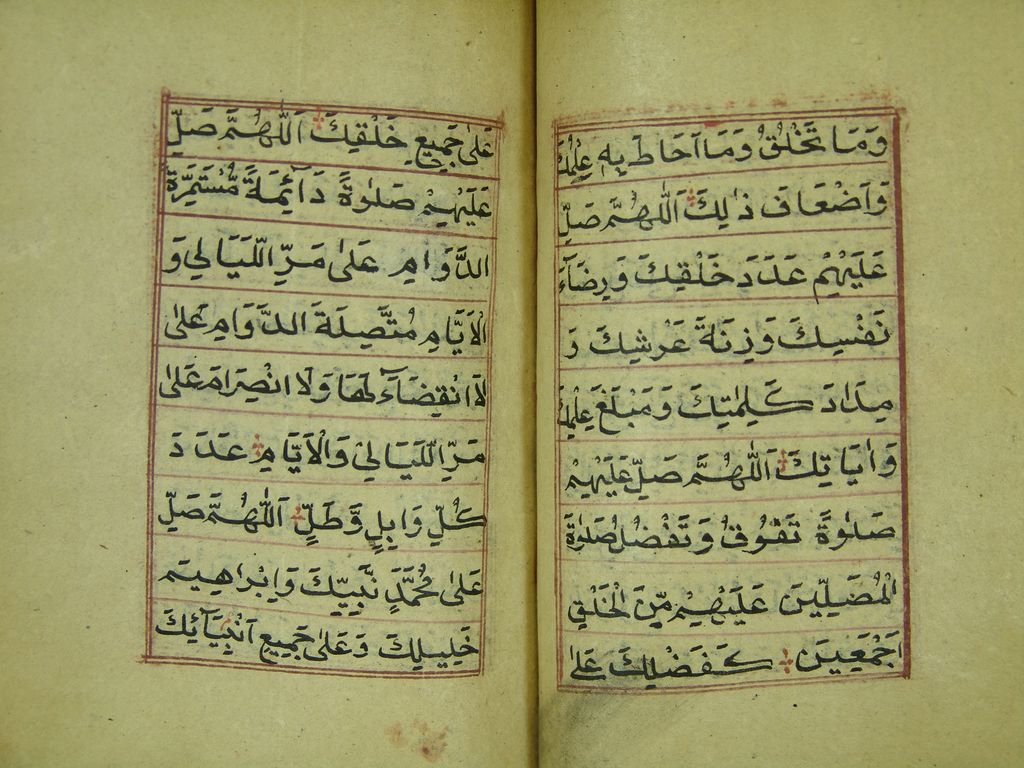 وَمَا تَخْلُقُ وَمَا اَحَاطَ بِهٖ عِلْمُكَ
وَاَضْعَافَ ذٰلِكَ اَللّٰهُمَّ صَلِّ
عَلَيْهِمْ عَدَدَ خَلْقِكَ وَرِضَآءَ
نَفْسِكَ وَزِنَةَ عَرْشِكَ وَ
مِدَادَ كَلِمٰتِكَ وَمَبْلَغَ عِلْمِكَ
وَاٰيَاتِكَ اَللّٰهُمَّ صَلِّ عَلَيْهِمْ
صَلٰوةً تَفُوْقُ وَتَفْضُلُ صَلٰوةَ
الْمُصَلِّيْنَ عَلَيْهِمْ مِّنَ الْخَلْقِ
اَجْمَعِيْنَ كَفَضْلِكَ عَلٰى
عَلٰى جَمِيْعِ خَلْقِكَ اَللّٰهُمَّ صَلِّ
عَلَيْهِمْ صَلٰوةً دَآئِمَةً مُّسْتَمِرَّةَ
الدَّوَامِ عَلٰى مَرِّ اللَّيَالِيْ وَ
الْاَيَّامِ مُتَّصِلَةَ الدَّوَامِ عَلٰى
لَا انْقِضَآءَ لَهَا وَلَا انْصِرَامَ عَلٰى
مَرِّ اللَّيَالِيْ وَالْاَيَّامِ عَدَدَ
كُلِّ وَابِلٍ وَّطَلٍّ اَللّٰهُمَّ صَلِّ
عَلٰى مُحَمَّدٍ نَّبِيِّكَ وَاِبْرَاهِيْمَ
خَلِيْلِكَ وَعَلٰى جَمِيْعِ اَنْبِيَآئِكَ